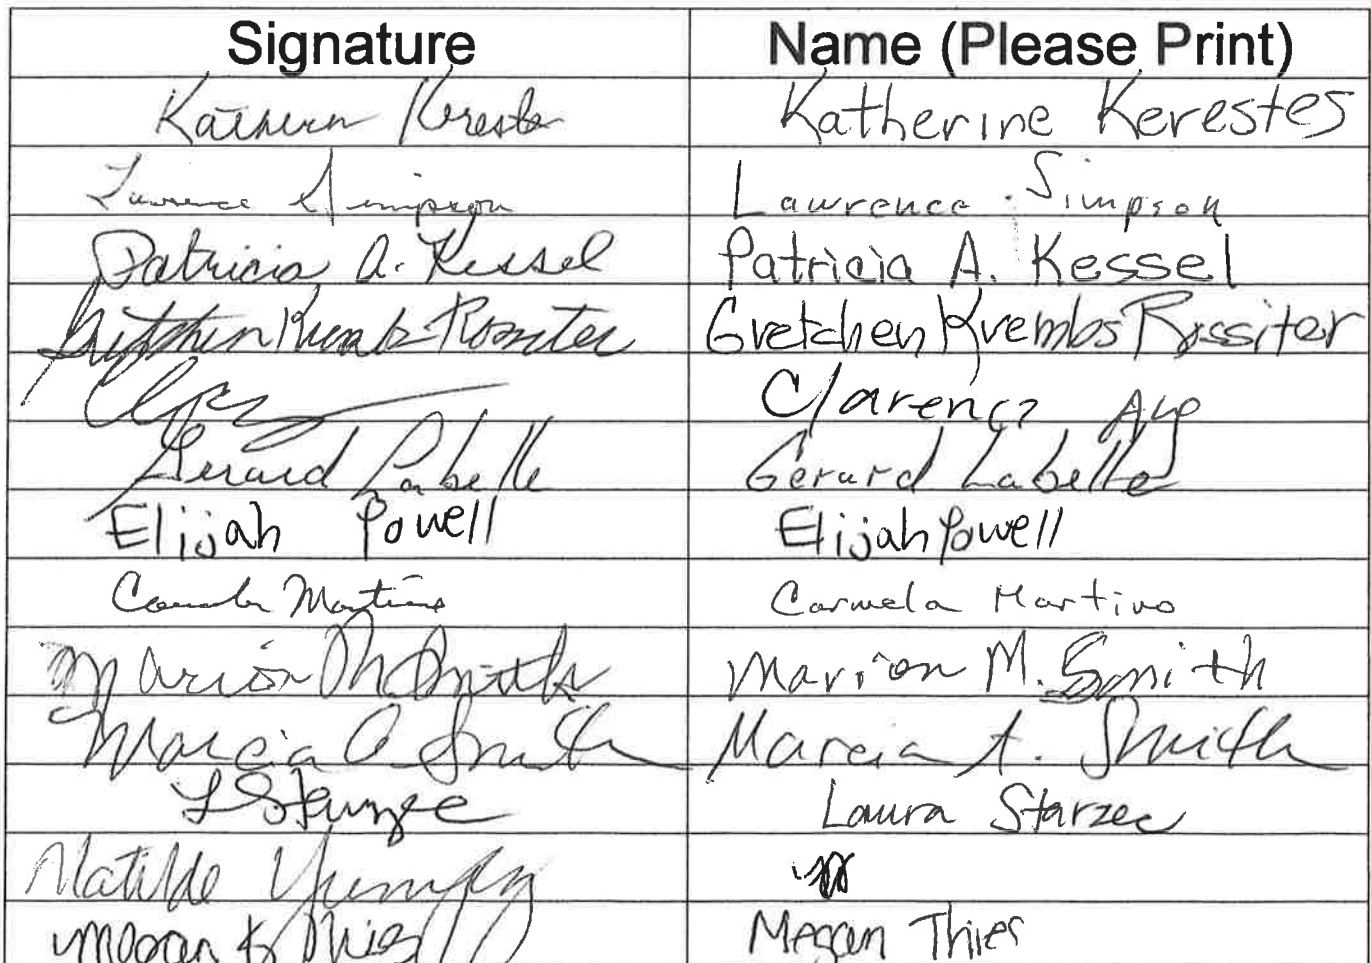 Signature Name (Please Print)
Katherine Kerestes Katherine Kerestes
Lawrence Simpson Lawrence Simpson
Patricia A. Kessel Patricia A. Kessel
Gretchen Krembs Rossiter Gretchen Krembs Rossiter
Clarence
Gerard Labelle Gerard Labelle
Elijah Powell Elijah Powell
Carmela Martino Carmela Martino
Marion M Smith Marion M. Smith
Marcia A Smith Marcia A. Smith
L Starzec Laura Starzec
Matilde
Megan K Thies Megan Thies